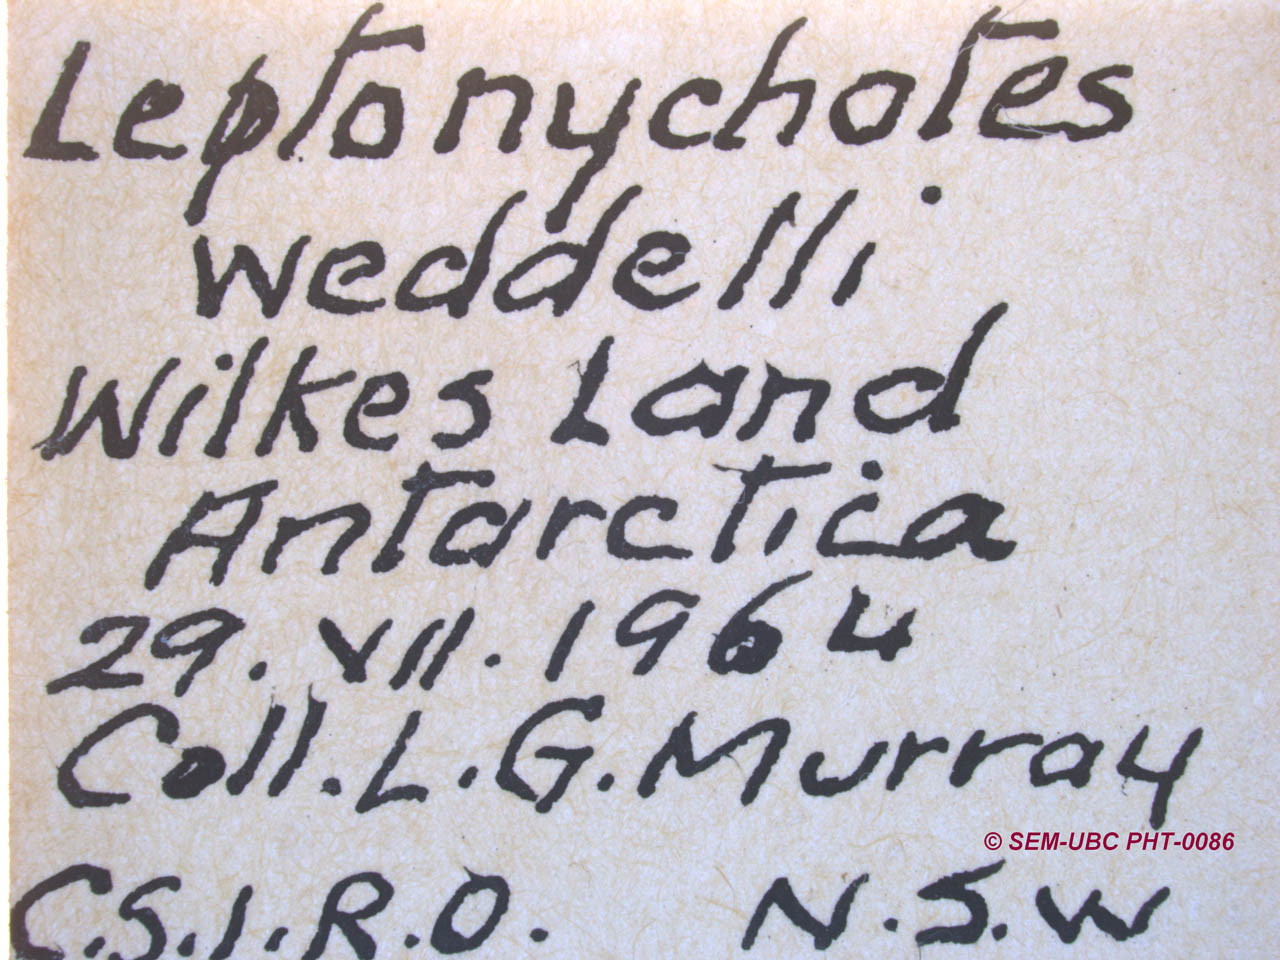 Leptonychotes
weddelli
Wilkes Land
Antarctica
29.VII.1964
Coll.L.G.Murray
© SEM-UBC PHT-0086
C.S.I.R.O. N.S.W